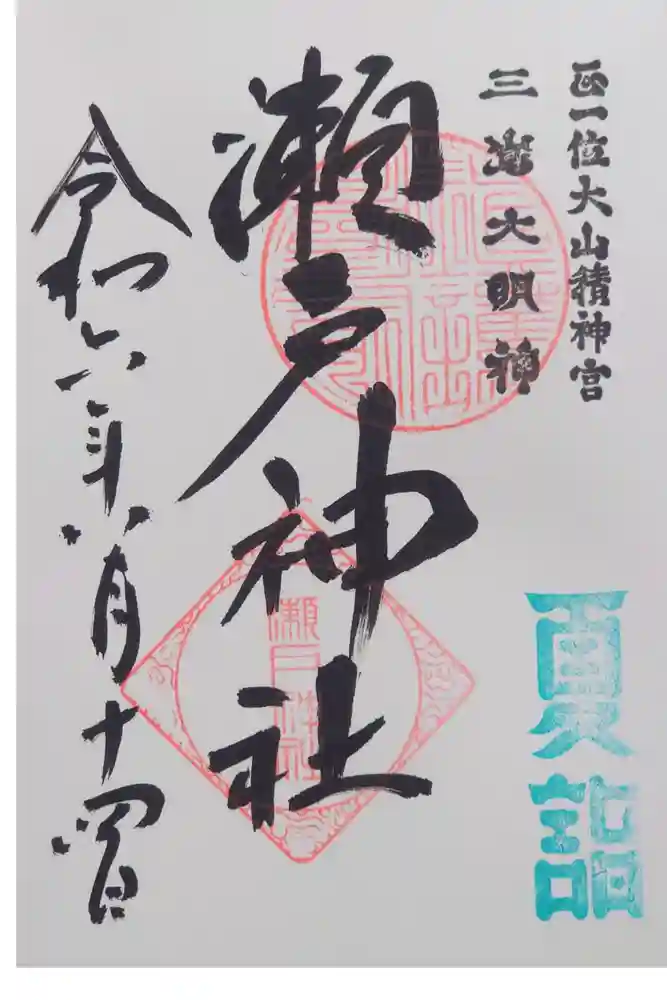 正一位大山積神宮
三嶌大明神
夏詣
瀬戸神社
瀬戸神社
令和六年八月十四日